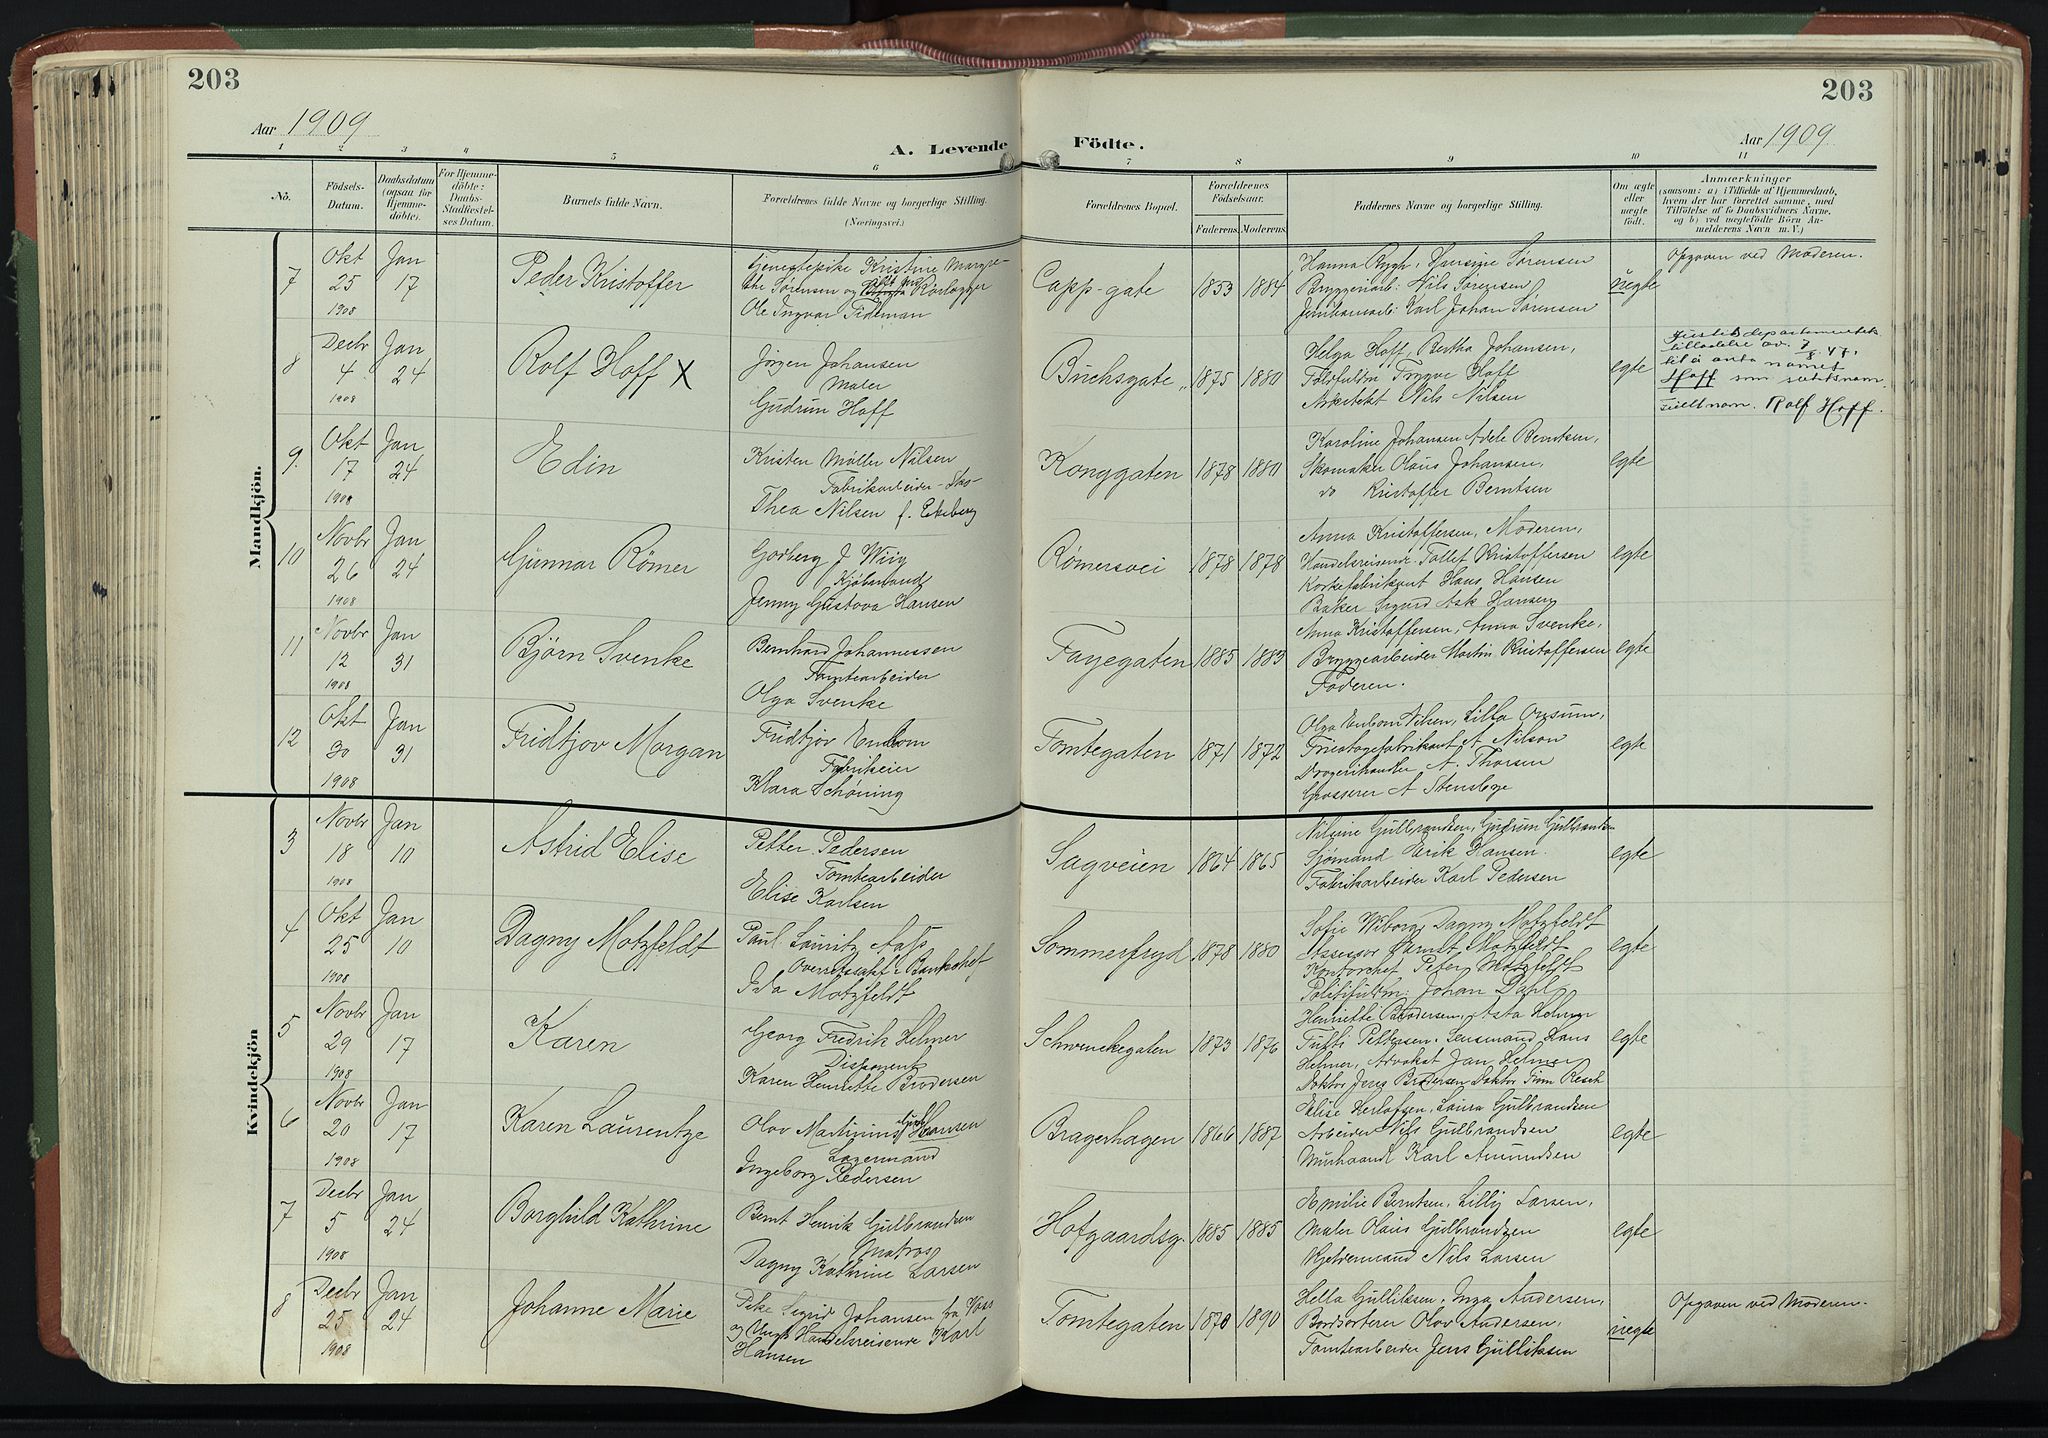 203
203
Aar 1909
Aar 1909
A. Levende
Födte.
1 2 3 4 5 6 7 8 9 10 11
No.
Födsels-
Datum.
Daabsdatum
(ogsaa for
Hjemme-
döbte).
For Hjemme-
döbte:
Daabs-
Stadfæstel-
ses Datum.
Barnets fulde Navn.
Forældrenes fulde Navne og borgerlige Stilling.
(Næringsvei.)
Forældrenes Bopæl.
Forældrenes
Födselsaar.
Faderens. Moderens.
Faddernes Navne og borgerlige Stilling.
Om ægte
eller
uægte
födt.
Anmærkninger
(saasom: a) i Tilfælde af Hjemmedaab,
hvem der har forrettet samme, med
Tilföielse af to Daabsvidners Navne,
og b) ved uægtefödte Börn An-
melderens Navn m. V.)
Mandkjön.
7
Okt
25
1908
Jan
17
Peder Kristoffer
Tjenestepike Kristine Margre-
the Sørensen og Rørlægger
Ole Ingvar Tideman
Capp-gate
1853 1884
Hanna Rygh, Hansine Sørensen
Bryggeriarb: Nils Sørensen
Jernbanearb: Karl Johan Sørensen
uegte
Opgaven ved Moderen.
8
Decbr
4
1908
Jan
24
Rolf Hoff X
Jørgen Johansen
Maler
Gudrun Hoff
Buchsgate
1875 1880
Helga Hoff, Bertha Johansen,
Toldfuldm Trygve Hoff
Arkitekt Nils Nilsen
egte
Justisdepartementets
tilladelse av 7/8.47,
til å anta navnet
Hoff som slektsnam
Fullt navn. Rolf Hoff.
9.
Okt
17
1908
Jan
24
Edin
Kristen Møller Nilsen
Fabrikarbeider
Thea Nilsen f. Ekeberg
Konggaten
1878 1880
Karoline Johansen Adele Berntsen,
Skomaker Olaus Johansen,
do Kristoffer Berntsen
egte
10
Novbr
26
1908
Jan
24
Gunnar Römer
Godberg J Wiig
Kjøbmand
Jenny Gustava Hansen
Rømersvei
1878 1878
Anna Kristoffersen, Moderen,
Handelsreisende Tollef Kristoffersen
Korkefabrikant Hans Hansen
Baker Sigurd Ask Hansen
egte
11
Novbr
12
1908
Jan
31
Bjørn Svenke
Bernhard Johannessen
Tomtearbeider
Olga Svenke
Fayegaten
1885 1883
Anna Kristoffersen, Anna Svenke,
Bryggearbeider Martin Kristoffersen
Faderen.
egte
12
Okt
30
1908
Jan
31
Fridtjov Morgan
Fridtjov Enbom
Fabrikeier
Klara Schøning
Tomtegaten
1871 1872
Olga Enbom Nilsen, Lilla Onsum,
Tricotagefabrikant A Nilson
Drogerihandler A. Thorsen
Grosserer A Stensbye
egte
Kvindekjön
3
Novbr
18
1908
Jan
10
Astrid Elise
Petter Pedersen
Tomtearbeider
Elise Karlsen
Sagveien
1864 1865
Nilsine Gulbrandsen, Gudrun Gulbrandsen
Sjømand Erik Hansen.
Fabrikarbeider Karl Pedersen
egte
4
Okt
25
1908
Jan
10
Dagny Motzfeldt
Paul Lauritz Aass
Overretssakf
Ida Motzfeldt
Sommerfryd
1878 1880
Sofie Wiborg Dagny Motzfeldt
Assessor Ernst Motzfeldt
Kontorchef Peter Motzfeldt
Politifuldm: Johan Dahl
egte
5
Novbr
29
1908
Jan
17
Karen
Georg Fredrik Helmer
Disponent
Karen Henriette Brodersen
Schwenckegaten
1873 1876
Henriette Brodersen, Asta Helmer
Tutti Pettersen, Lensmand Hans
Helmer, Advokat Jan Helmer
Doktor Jens Brodersen Doktor Finn Resch
egte
6
Novbr
20
1908
Jan
17
Karen Laurentze
Olov Martinius Hansen
Lagermand
Ingeborg Pedersen
Bragerhagen
1866 1887
Elise Herlofsen, Laura Gulbrandsen
Arbeider Nils Gulbrandsen
Murhaandl Karl Amundsen
egte
7
Decbr
5
1908
Jan
24
Borghild Kathrine
Bernt Henrik Gulbrandsen
Matros
Dagny Kathrine Larsen
Hofgaardsg.
1885 1885
Emilie Berntsen, Lilly Larsen,
Maler Olaus Gulbrandsen
Kjeldermand Nils Larsen
egte
8
Decbr
25
1908
Jan
24
Johanne Marie
Pike Sigrid Johansen fra Voss
og Handelsreisende Karl
Hansen
Tomtegaten
1870 1890
Hella Gulliksen, Inga Andersen,
Bordsorterer Olov Andersen,
Tomtearbeider Jens Gulliksen
uegte
Opgaven ved Moderen.